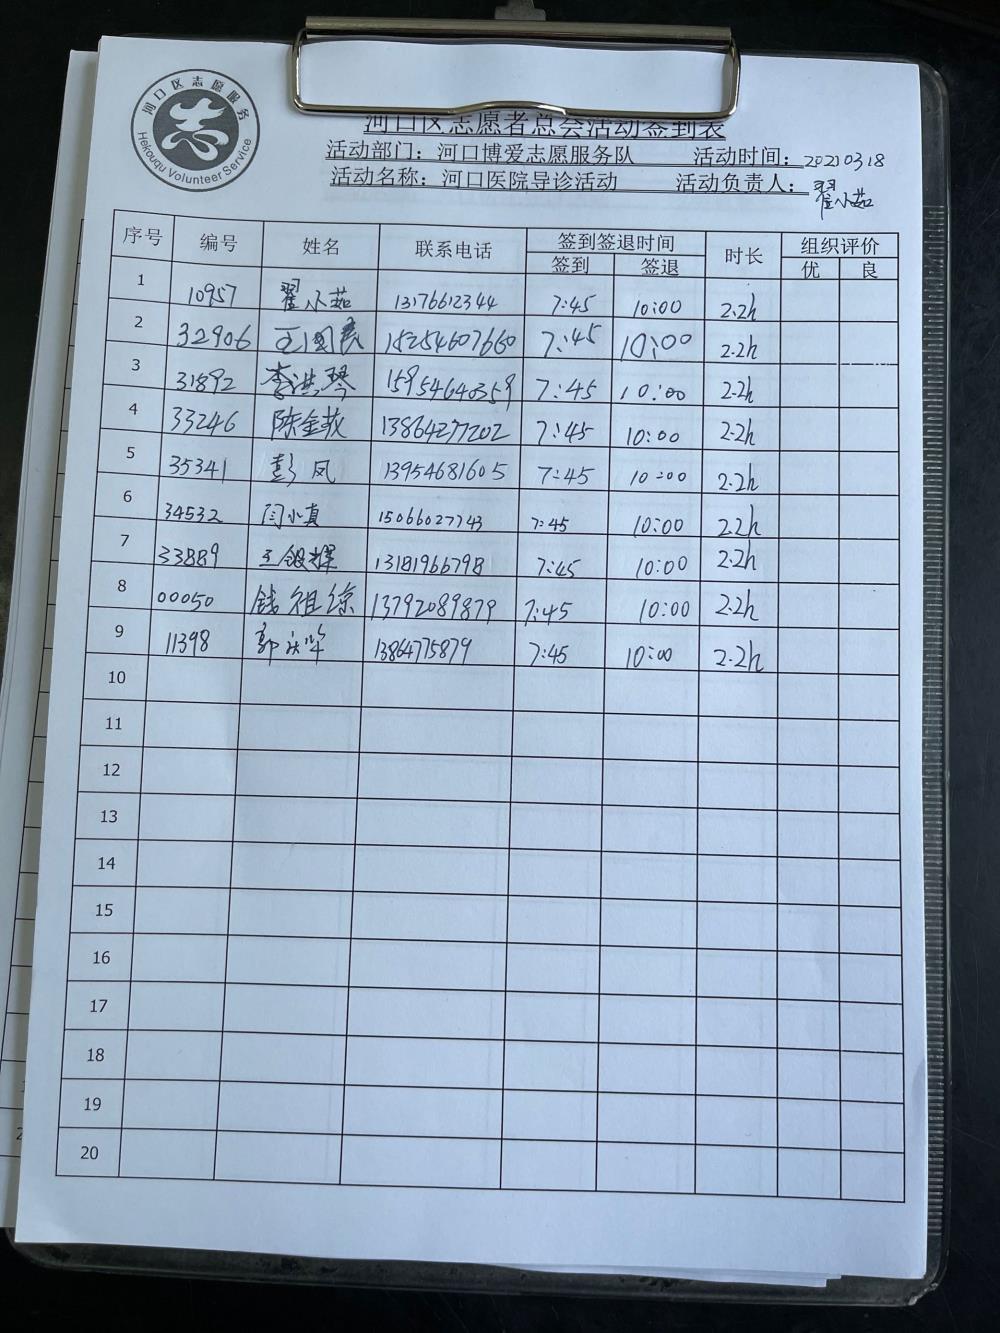 河口区志愿服务
志
Hekouqu Volunteer Service
河口区志愿者总会活动签到表
活动部门：河口博爱志愿服务队 活动时间：20210318
活动名称：河口医院导诊活动 活动负责人：翟小茹
序号 编号 姓名 联系电话 签到签退时间 时长 组织评价
签到 签退 优 良
1 10957 翟小茹 13176612344 7:45 10:00 2.2h
2 32906 15254607660 7:45 10:00 2.2h
3 31892 李洪琴 15954640359 7:45 10:00 2.2h
4 33246 陈金荻 13864277202 7:45 10:00 2.2h
5 35341 彭凤 13954681605 7:45 10:00 2.2h
6 34532 闫小真 15066027743 7:45 10:00 2.2h
7 33889 13181966798 7:45 10:00 2.2h
8 00050 钱祖琼 13792089879 7:45 10:00 2.2h
9 11398 郭 13864775879 7:45 10:00 2.2h
10
11
12
13
14
15
16
17
18
19
20